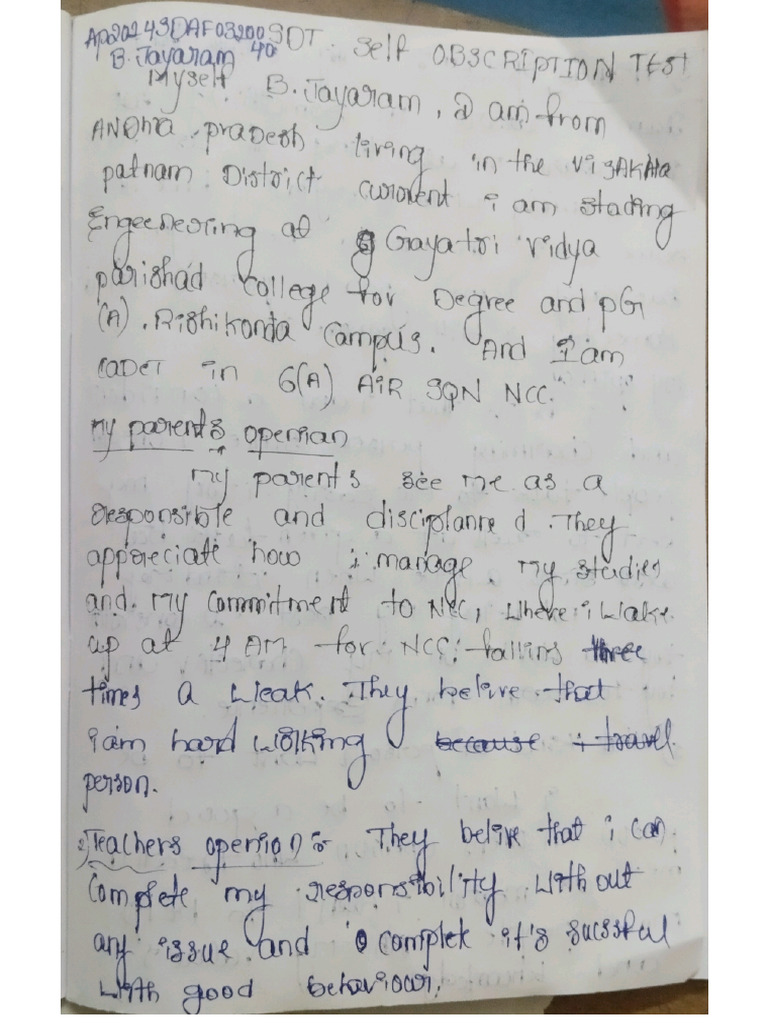 AP2024SDAF03200 SDT. Self OBSCRIPTION TEST
B. Jayaram 40
Myself B. Jayaram, I am from
ANDhra pradesh living in the visAkha
patnam District current i am stading
Engeenering at Gayatri vidya
parishad college for Degree and pG
(A). Rishikonda Campus. And I am
CADET in 6(A) AIR SQN NCC.
My parent's openian
My parents see me as a
responsible and disciplanned. They
appreciate how i manage my studies
and my commitment to NCC, where i wake
up at 4 AM for NCC falling three
times a weak. They belive that
i am hard wolking because i travel
person.
2) Teachers openion :- They belive that i can
complete my responsibility without
any issue and complek it's sucssful
with good behaviour.